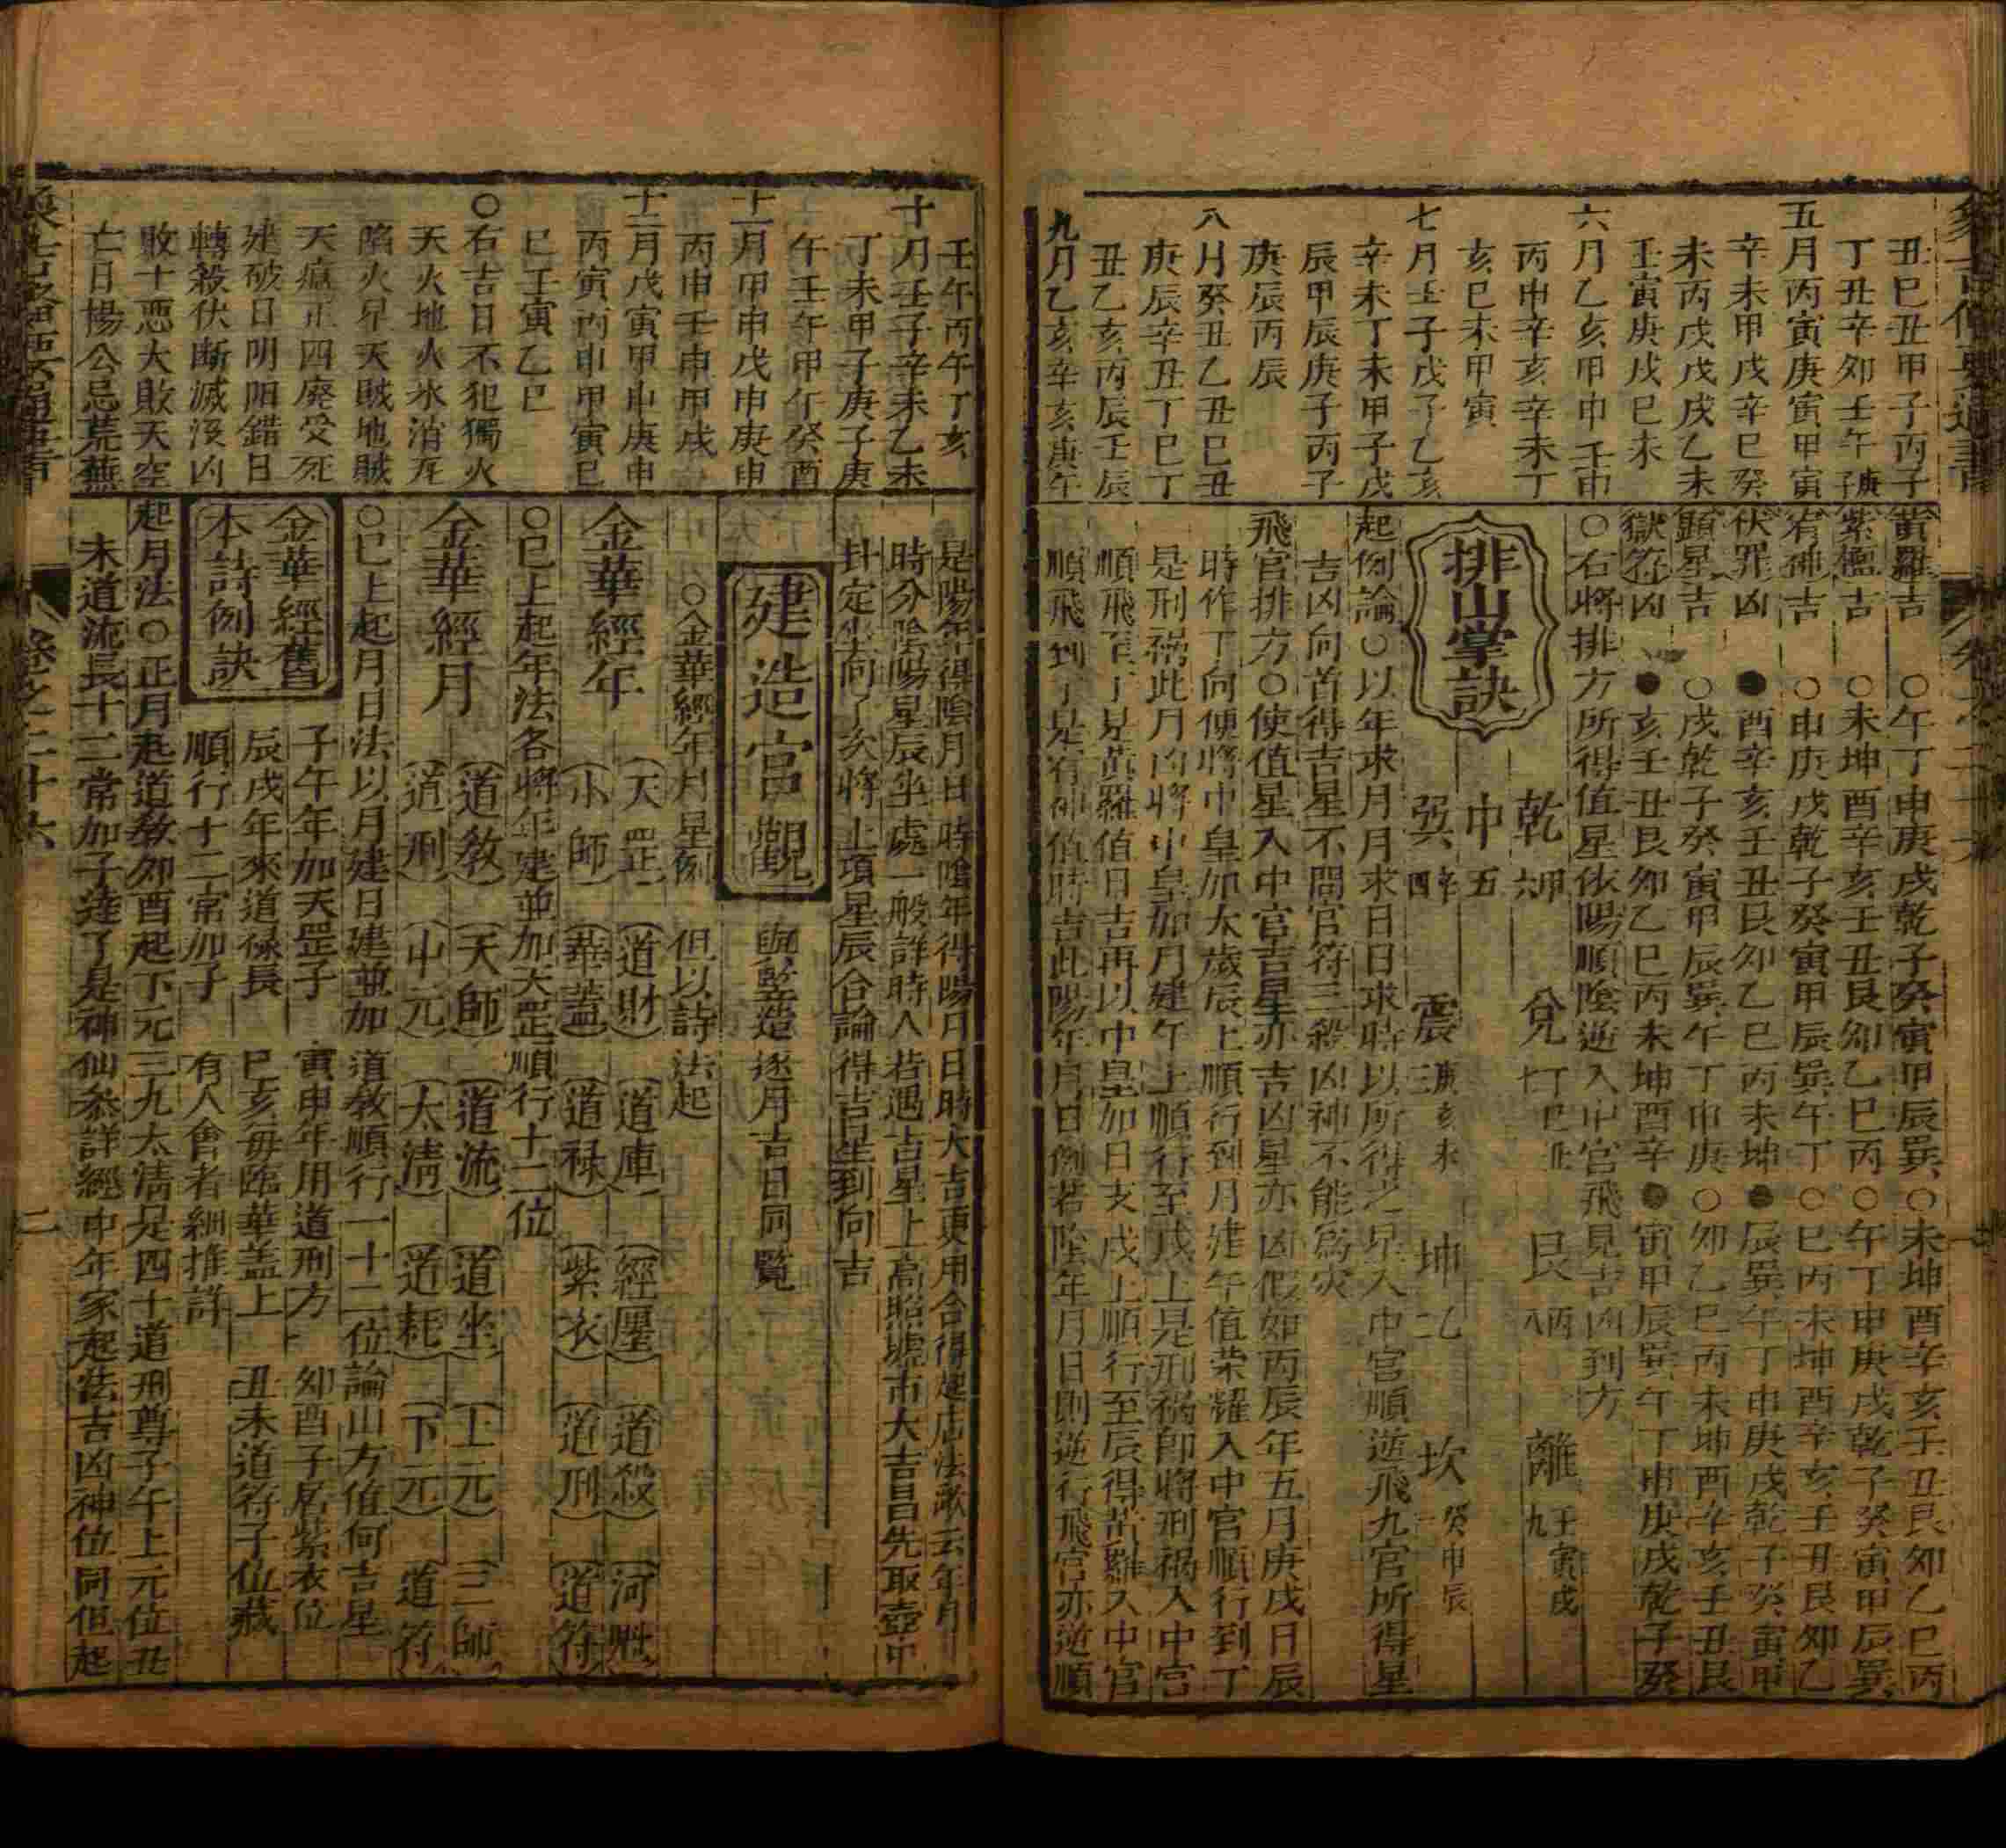 丑巳丑甲子丙子
丁丑辛卯壬午庚子
五月丙寅庚寅甲寅
辛未甲戌辛巳癸
未丙戌戊戌乙未
壬寅庚戌巳未
六月乙亥甲申壬申
丙申辛亥辛未丁
亥巳未甲寅
七月壬子戊子乙亥
辛未丁未甲子戊
辰甲辰庚子丙子
庚辰丙辰
八月癸丑乙丑巳丑
庚辰辛丑丁巳丁
丑乙亥丙辰壬辰
九月乙亥辛亥庚午
黃羅吉 ○午丁申庚戌乾子癸寅甲辰巽○未坤酉辛亥壬丑艮卯乙巳丙
紫檀吉 ○未坤酉辛亥壬丑艮卯乙巳丙○午丁申庚戌乾子癸寅甲辰巽
宥神吉 ○申庚戌乾子癸寅甲辰巽午丁○巳丙未坤酉辛亥壬丑艮卯乙
伏罪凶 ●酉辛亥壬丑艮卯乙巳丙未坤●辰巽午丁申庚戌乾子癸寅甲
顯星吉 ○戌乾子癸寅甲辰巽午丁申庚○卯乙巳丙未坤酉辛亥壬丑艮
獄符凶 ●亥壬丑艮卯乙巳丙未坤酉辛●寅甲辰巽午丁申庚戌乾子癸
○右將排方所得值星依陽順陰逆入中宮飛見吉凶到方
排山掌訣
乾六甲 兌七丁巳丑 艮八丙 離九壬寅戌
中五
巽四辛 震三庚亥未 坤二乙 坎一癸申辰
起例論○以年求月月求日日求時以所得之星入中宮順逆飛九宮所得星
吉凶向首得吉星不問官符三殺凶神不能為灾
飛宮排方○使值星入中宮吉星亦吉凶星亦凶假如丙辰年五月庚戌日辰
時作丁向便將中皇加太歲辰上順行到月建午值榮耀入中宮順行到丁
是刑禍此月凶將中皇加月建午上順行至戌上是刑禍即將刑禍入中宮
順飛看丁是黃羅值日吉再以中皇加日支戌上順行至辰得黃羅入中宮
順飛到丁是宥神值時吉此陽年月日例若陰年月日則逆行飛宮亦逆順
壬午丙午丁亥
十月壬子辛未乙未
丁未甲子庚子庚
午壬午甲午癸酉
十一月甲申戊申庚申
丙申壬申甲戌
十二月戊寅甲申庚申
丙寅丙申甲寅巳
巳壬寅乙巳
○右吉日不犯獨火
天火地火氷消瓦
陷火星天賊地賊
天瘟正四廢受死
建破日陰陽錯日
轉殺伏斷滅沒凶
敗十惡大敗天空
亡日楊公忌荒蕪
是陽年得陰月日時陰年得陽月日時大吉更用合得起店法歌云年月
時分陰陽星辰坐處一般詳時人若遇吉星上高照墟市大吉昌先取壺中
針定坐向了次將上項星辰合論得吉星到向吉
建造宮觀 與竪造逐月吉日同覽
○金華經年月星例 但以詩法起
金華經年 (天罡)(道財)(道庫)(經壓)(道殺)(河魁)
(小師)(華蓋)(道祿)(紫衣)(道刑)(道符)
○巳上起年法各將年建並加天罡順行十二位
金華經月 (道教)(天師)(道流)(道坐)(上元)(三師)
(道刑)(中元)(太清)(道耗)(下元)(道符)
○巳上起月日法以月建日建並加道教順行一十二位論山方值何吉星
金華經舊本詩例訣
子午年加天罡子 寅申年用道刑方 卯酉子居紫衣位
辰戌年來道祿長 巳亥每臨華蓋上 丑未道符子位藏
順行十二常加子 有人會者細推詳
起月法○正月起道教卯酉起下元三九太清是四十道刑尊子午上元位丑
未道流長十二常加子達了是神仙參詳經中年家起法吉凶神位同但起
卷之二十六
二